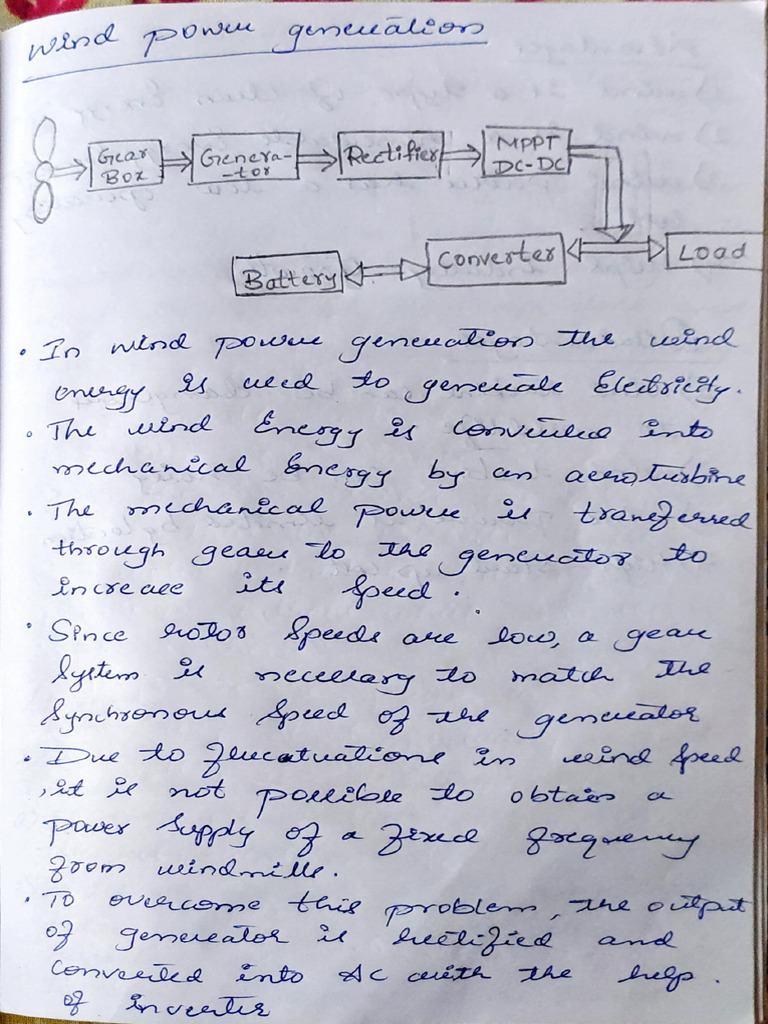 Wind power generation
Gear
Box
Genera-
-tor
Rectifier
MPPT
DC-DC
Battery
Converter
Load
• In wind power generation the wind
energy is used to generate Electricity.
• The wind Energy is converted into
mechanical Energy by an aeroturbine
• The mechanical power is transferred
through gears to the generator to
increase its speed.
• Since rotor speeds are low, a gear
system is necessary to match the
synchronous speed of the generator
• Due to flucatuations in wind speed
, it is not possible to obtain a
power supply of a fixed frequency
from windmills.
• To overcome this problem, the output
of generator is rectified and
converted into AC with the help.
of inverter